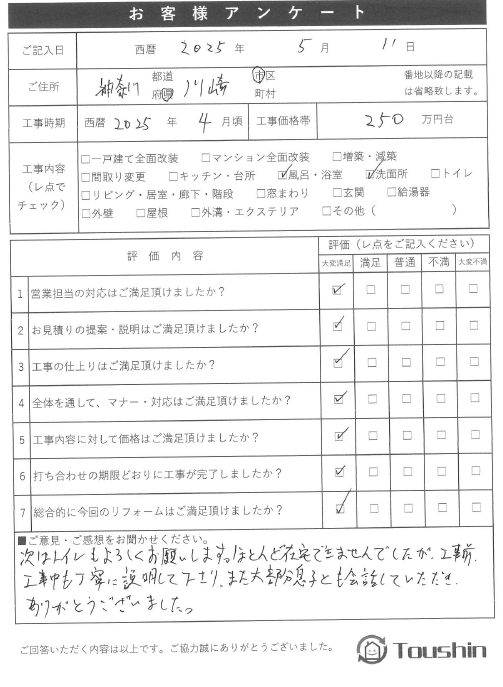 お客様アンケート
ご記入日 西暦 2025 年 5 月 11 日
ご住所 神奈川 都道府県 川崎 市区町村 番地以降の記載は省略致します。
工事時期 西暦 2025 年 4 月頃 工事価格帯 250 万円台
工事内容（レ点でチェック）
□一戸建て全面改装 □マンション全面改装 □増築・減築
□間取り変更 □キッチン・台所 ☑風呂・浴室 ☑洗面所 □トイレ
□リビング・居室・廊下・階段 □窓まわり □玄関 □給湯器
□外壁 □屋根 □外溝・エクステリア □その他（ ）
評価内容 評価（レ点をご記入ください）
大変満足 満足 普通 不満 大変不満
1 営業担当の対応はご満足頂けましたか？ ☑ □ □ □ □
2 お見積りの提案・説明はご満足頂けましたか？ ☑ □ □ □ □
3 工事の仕上りはご満足頂けましたか？ ☑ □ □ □ □
4 全体を通して、マナー・対応はご満足頂けましたか？ ☑ □ □ □ □
5 工事内容に対して価格はご満足頂けましたか？ ☑ □ □ □ □
6 打ち合わせの期限どおりに工事が完了しましたか？ ☑ □ □ □ □
7 総合的に今回のリフォームはご満足頂けましたか？ ☑ □ □ □ □
■ご意見・ご感想をお聞かせください。
次はトイレもよろしくお願いします。ほとんど在宅できませんでしたが、工事前、
工事中も丁寧に説明して下さり、また大部分息子とも会話していただき
ありがとうございました。
ご回答いただく内容は以上です。ご協力誠にありがとうございました。
Toushin